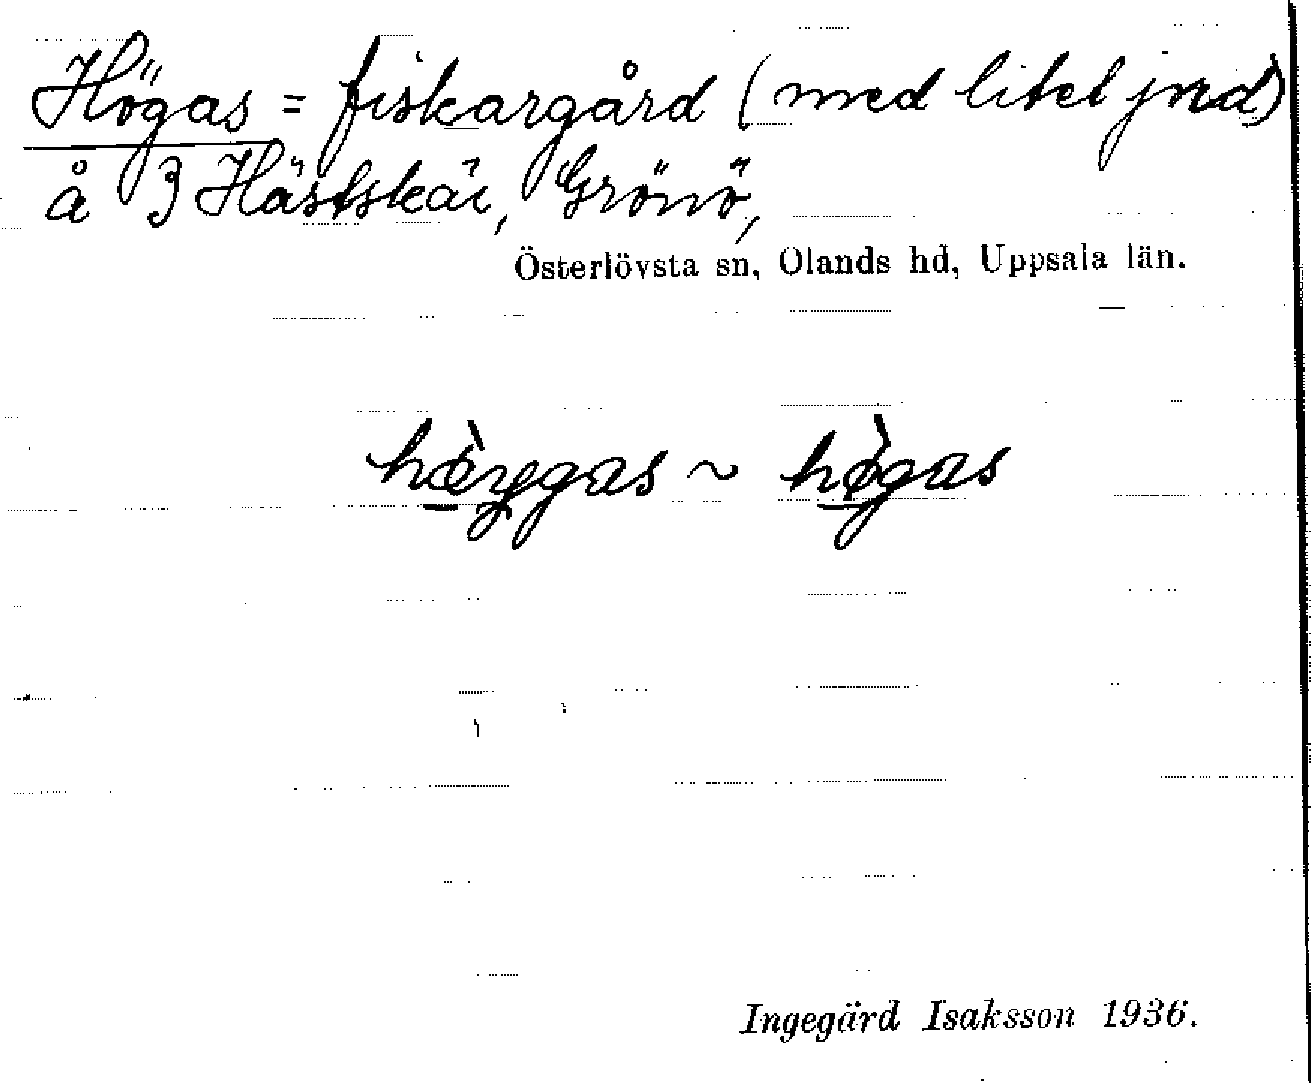 Högas = fiskargård (med litet jord)
å 3 Hästskär, Grönö,
Österlövsta sn, Olands hd, Uppsala län.
hø̀ygas ~ hø̀gas
Ingegärd Isaksson 1936.